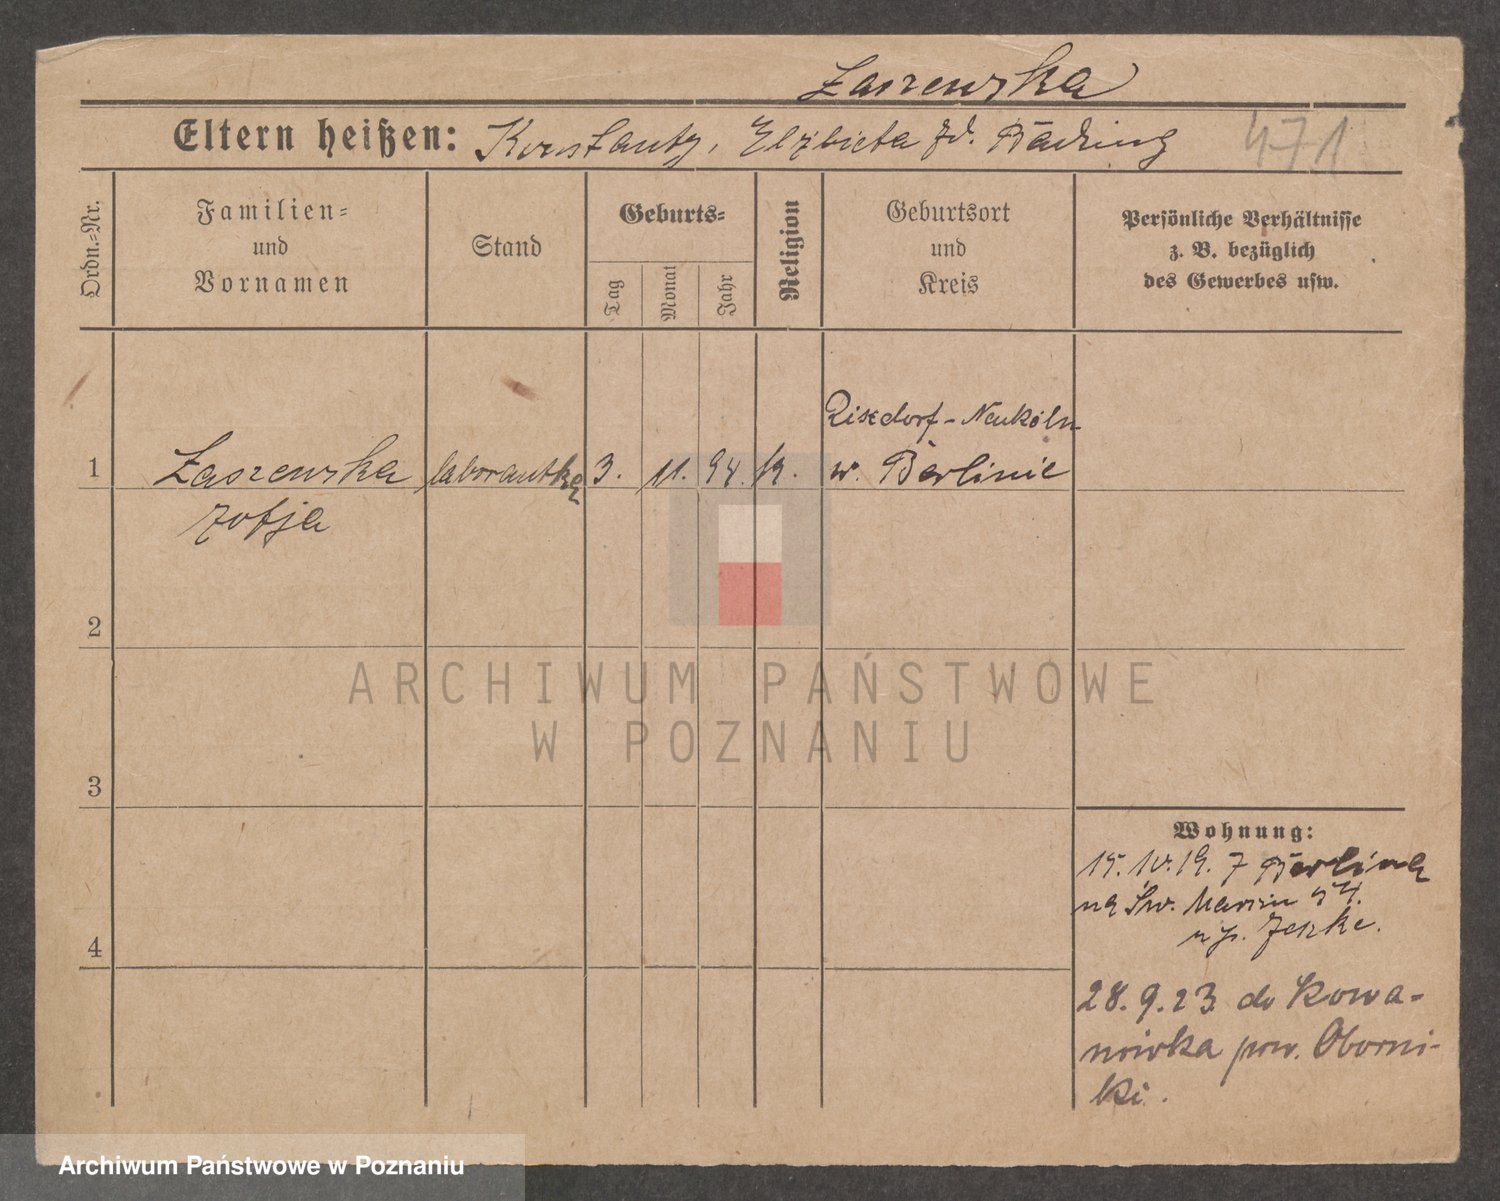 Łaszewska
Eltern heißen: Konstanty, Elżbieta zd. Bading 471
Ordn.=Nr.
Familien=
und
Vornamen
Stand
Geburts=
Tag
Monat
Jahr
Religion
Geburtsort
und
Kreis
Persönliche Verhältnisse
z. B. bezüglich
des Gewerbes usw.
Rixdorf-Neukoln
1 Łaszewska laborantka 3. 11. 94. k. w. Berlinie
Zofja
2
3
4
Wohnung:
15. 10. 19. z Berlina
na Św. Marcin 54.
u p. Jeszke.
28. 9. 23 do Kowa-
nówka pow. Oborni-
ki.
ARCHIWUM PAŃSTWOWE
W POZNANIU
Archiwum Państwowe w Poznaniu